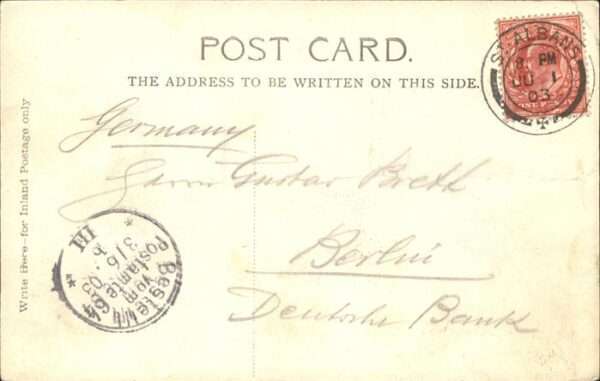 POST CARD.
THE ADDRESS TO BE WRITTEN ON THIS SIDE.
ST. ALBANS
8. PM
JU 1
03
ONE PENNY
Write Here—for Inland Postage only
Germany
Herrn Gustav Brett
Berlin
Deutsche Bank
Bestellt
vom
Postamte 64
3/6. 03
III